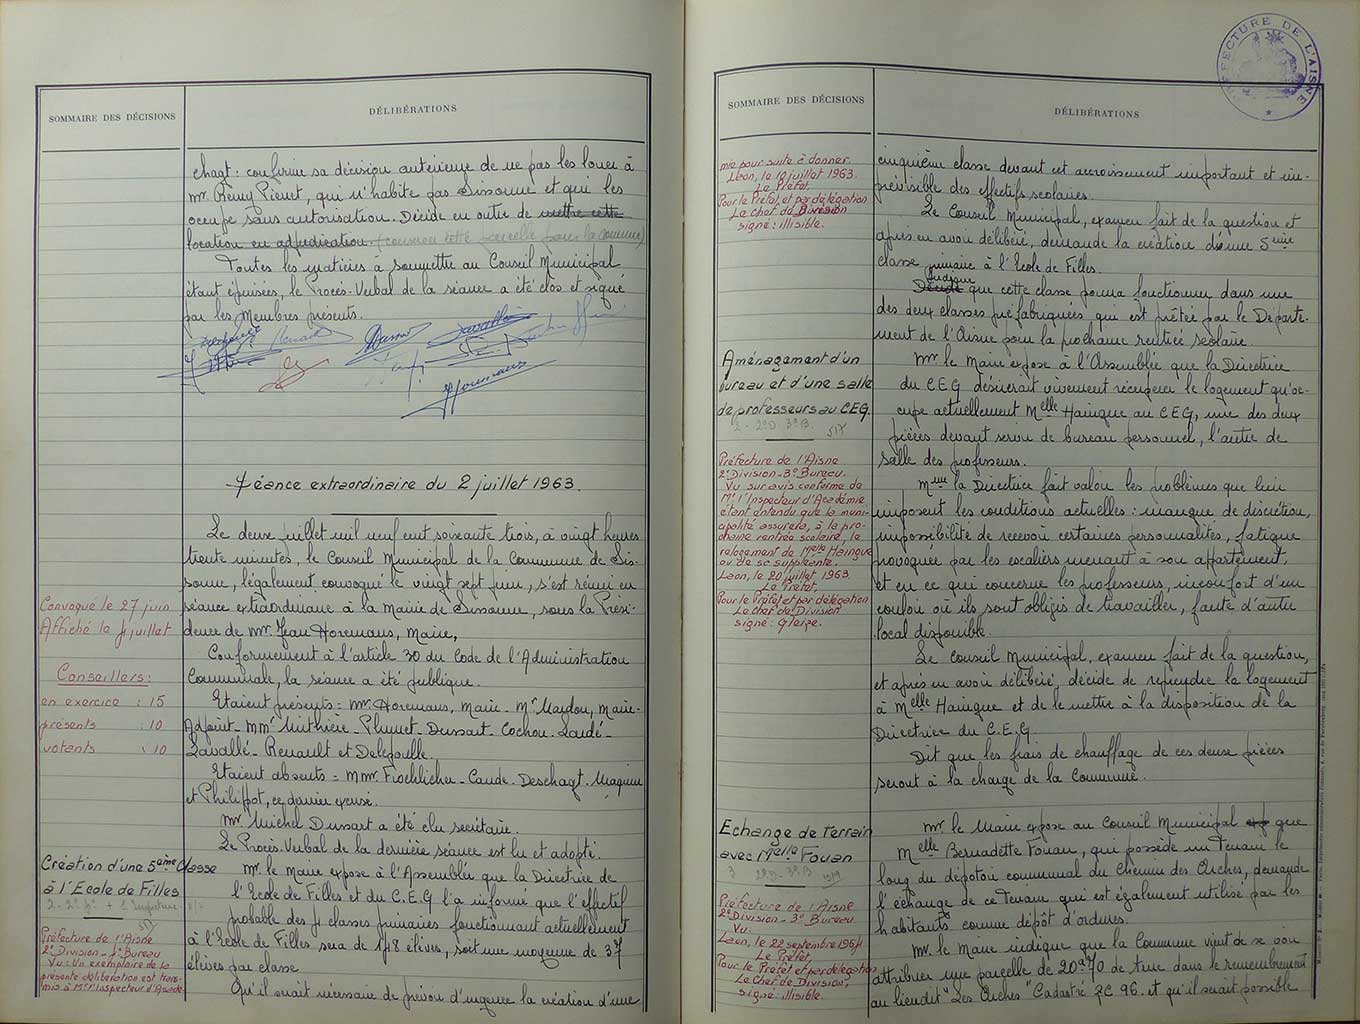 SOMMAIRE DES DÉCISIONS
DÉLIBÉRATIONS
chagt : confirme sa décision antérieure de ne pas les louer à
Mr Rémy Pierret, qui n'habite pas Sissonne et qui les
occupe sans autorisation. Décide en outre de mettre cette
location en adjudication. (conserver cette parcelle pour la commune)
Toutes les matières à soumettre au Conseil Municipal
étant épuisées, le Procès-Verbal de la séance a été clos et signé
par les Membres présents.
Séance extraordinaire du 2 juillet 1963.
Le deux juillet mil neuf cent soixante trois, à vingt heures
trente minutes, le Conseil Municipal de la Commune de Sis-
sonne, légalement convoqué le vingt sept juin, s'est réuni en
séance extraordinaire à la Mairie de Sissonne, sous la Prési-
dence de Mr Jean Horemans, Maire,
Convoqué le 27 juin
Affiché le 4 juillet
Conformément à l'article 30 du Code de l'Administration
Communale, la séance a été publique.
Conseillers :
en exercice : 15
présents : 10
votants : 10
Etaient présents = Mr Horemans, Maire - Mr Mardou, Maire-
Adjoint - MMr Mithière - Plumet - Dussart - Cochou - Laudé -
Lavallé - Renault et Delepoulle.
Etaient absents = MMr Froehlicher - Caude - Deschagt - Maquin
et Philippot, ce dernier excusé.
Mr Michel Dussart a été élu secrétaire.
Le Procès-Verbal de la dernière séance est lu et adopté.
Création d'une 5ème Classe
à l'Ecole de Filles
Mr le Maire expose à l'Assemblée que la Directrice de
l'Ecole de Filles et du C.E.G l'a informé que l'effectif
probable des 4 classes primaires fonctionnant actuellement
à l'Ecole de Filles sera de 148 élèves, soit une moyenne de 37
élèves par classe
Qu'il serait nécessaire de prévoir d'urgence la création d'une
Préfecture de l'Aisne
2e Division - 1er Bureau
Vu : Un exemplaire de la
présente délibération est trans-
mis à Mr l'Inspecteur d'Acadé-
PREFECTURE DE L'AISNE
SOMMAIRE DES DÉCISIONS
DÉLIBÉRATIONS
mie pour suite à donner.
Laon, le 10 juillet 1963.
Le Préfet,
Pour le Préfet, et par délégation
Le chef de Division
signé : illisible.
cinquième classe devant cet accroissement important et im-
prévisible des effectifs scolaires.
Le Conseil Municipal, examen fait de la question et
après en avoir délibéré, demande la création d'une 5ème
classe primaire à l'Ecole de Filles.
Indique
Décide que cette classe pourra fonctionner dans une
des deux classes préfabriquées qui est prêtée par le Départe-
ment de l'Aisne pour la prochaine rentrée scolaire.
Aménagement d'un
bureau et d'une salle
de professeurs au CEG.
2 - 2eD 3eB. 517
Mr le Maire expose à l'Assemblée que la Directrice
du C.E.G désirerait vivement récupérer le logement qu'oc-
cupe actuellement Melle Haingue au C.E.G, une des deux
pièces devant servir de bureau personnel, l'autre de
salle des professeurs.
Préfecture de l'Aisne
2e Division - 3e Bureau.
Vu sur avis conforme de
Mr l'Inspecteur d'Académie
étant entendu que la muni-
cipalité assurera, à la pro-
chaine rentrée scolaire, le
relogement de Melle Haingue
ou de sa suppléante.
Laon, le 20 juillet 1963.
Le Préfet,
Pour le Préfet et par délégation
Le chef de Division
signé : Gleize.
Mme la Directrice fait valoir les problèmes que lui
imposent les conditions actuelles : manque de discrétion,
impossibilité de recevoir certaines personnalités, fatigue
provoquée par les escaliers menant à son appartement,
et en ce qui concerne les professeurs, inconfort d'un
couloir où ils sont obligés de travailler, faute d'autre
local disponible.
Le Conseil Municipal, examen fait de la question,
et après en avoir délibéré, décide de reprendre le logement
à Melle Haingue et de le mettre à la disposition de la
Directrice du C.E.G.
Dit que les frais de chauffage de ces deux pièces
seront à la charge de la Commune.
Echange de terrain
avec Melle Fouan
3 2eD - 3eB
Préfecture de l'Aisne
2e Division - 3e Bureau
Vu
Laon, le 22 septembre 1964
Le Préfet,
Pour le Préfet et par délégation
Le Chef de Division,
signé : illisible.
Mr le Maire expose au Conseil Municipal que
Melle Bernadette Fouan, qui possède un terrain le
long du dépotoir communal du Chemin des Arches, demande
l'échange de ce terrain qui est également utilisé par les
habitants comme dépôt d'ordures.
Mr le Maire indique que la Commune vient de se voir
attribuer une parcelle de 20a70 de terre dans le remembrement
au lieudit "Les Arches" Cadastré ZC 96. et qu'il serait possible